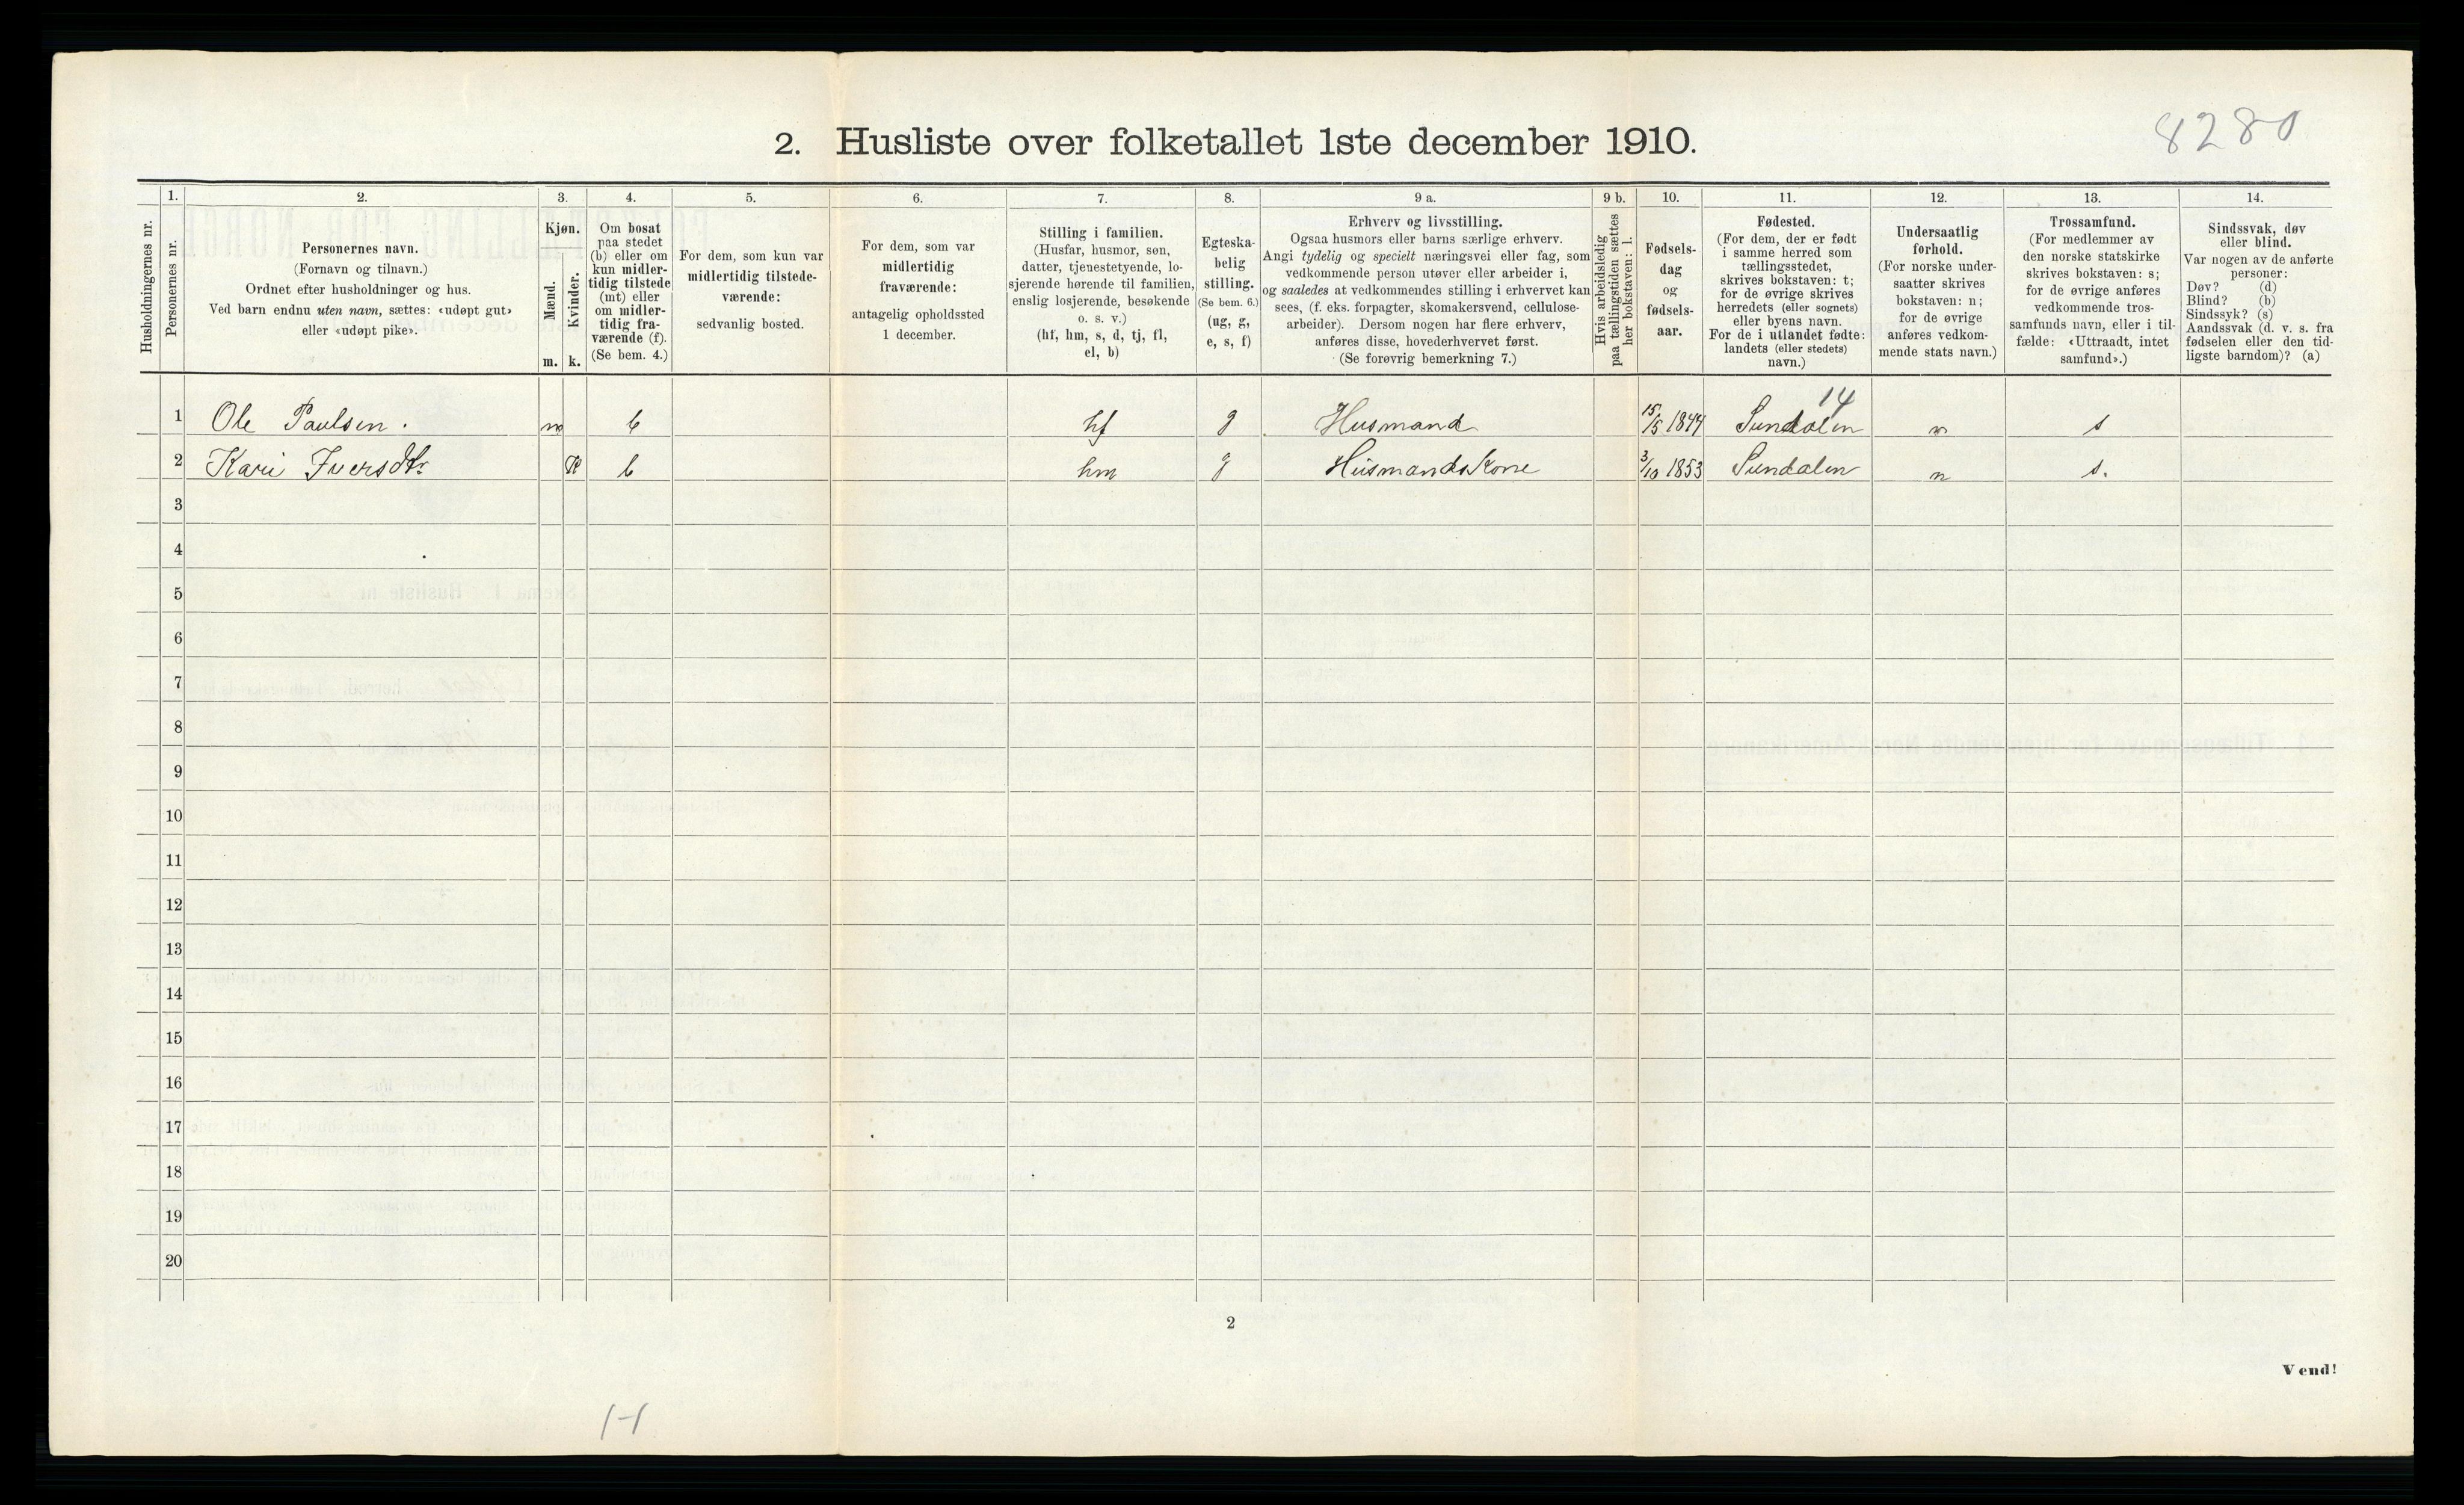 8280
2. Husliste over folketallet 1ste december 1910.
Husholdningernes nr.
1.
Personernes nr.
2.
Personernes navn.
(Fornavn og tilnavn.)
Ordnet efter husholdninger og hus.
Ved barn endnu uten navn, sættes: «udøpt gut»
eller «udøpt pike».
3.
Kjøn.
Mænd.
m.
Kvinder.
k.
4.
Om bosat
paa stedet
(b) eller om
kun midler-
tidig tilstede
(mt) eller
om midler-
tidig fra-
værende (f).
(Se bem. 4.)
5.
For dem, som kun var
midlertidig tilstede-
værende:
sedvanlig bosted.
6.
For dem, som var
midlertidig
fraværende:
antagelig opholdssted
1 december.
7.
Stilling i familien.
(Husfar, husmor, søn,
datter, tjenestetyende, lo-
sjerende hørende til familien,
enslig losjerende, besøkende
o. s. v.)
(hf, hm, s, d, tj, fl,
el, b)
8.
Egteska-
belig
stilling.
(Se bem. 6.)
(ug, g,
e, s, f)
9 a.
Erhverv og livsstilling.
Ogsaa husmors eller barns særlige erhverv.
Angi tydelig og specielt næringsvei eller fag, som
vedkommende person utøver eller arbeider i,
og saaledes at vedkommendes stilling i erhvervet kan
sees, (f. eks. forpagter, skomakersvend, cellulose-
arbeider). Dersom nogen har flere erhverv,
anføres disse, hovederhvervet først.
(Se forøvrig bemerkning 7.)
9 b.
Hvis arbeidsledig
paa tællingstiden sættes
her bokstaven: l.
10.
Fødsels-
dag
og
fødsels-
aar.
11.
Fødested.
(For dem, der er født
i samme herred som
tællingsstedet,
skrives bokstaven: t;
for de øvrige skrives
herredets (eller sognets)
eller byens navn.
For de i utlandet fødte:
landets (eller stedets)
navn.)
12.
Undersaatlig
forhold.
(For norske under-
saatter skrives
bokstaven: n;
for de øvrige
anføres vedkom-
mende stats navn.)
13.
Trossamfund.
(For medlemmer av
den norske statskirke
skrives bokstaven: s;
for de øvrige anføres
vedkommende tros-
samfunds navn, eller i til-
fælde: «Uttraadt, intet
samfund».)
14.
Sindssvak, døv
eller blind.
Var nogen av de anførte
personer:
Døv? (d)
Blind? (b)
Sindssyk? (s)
Aandssvak (d. v. s. fra
fødselen eller den tid-
ligste barndom)? (a)
14
1 Ole Paulsen. m b hf g Husmand 15/5 1844 Sundalen n s
2 Kari Iversdtr K b hm g Husmandskone 3/10 1853 Sundalen n s.
3
4
5
6
7
8
9
10
11
12
13
14
15
16
17
18
19
20
2
Vend!
1-1